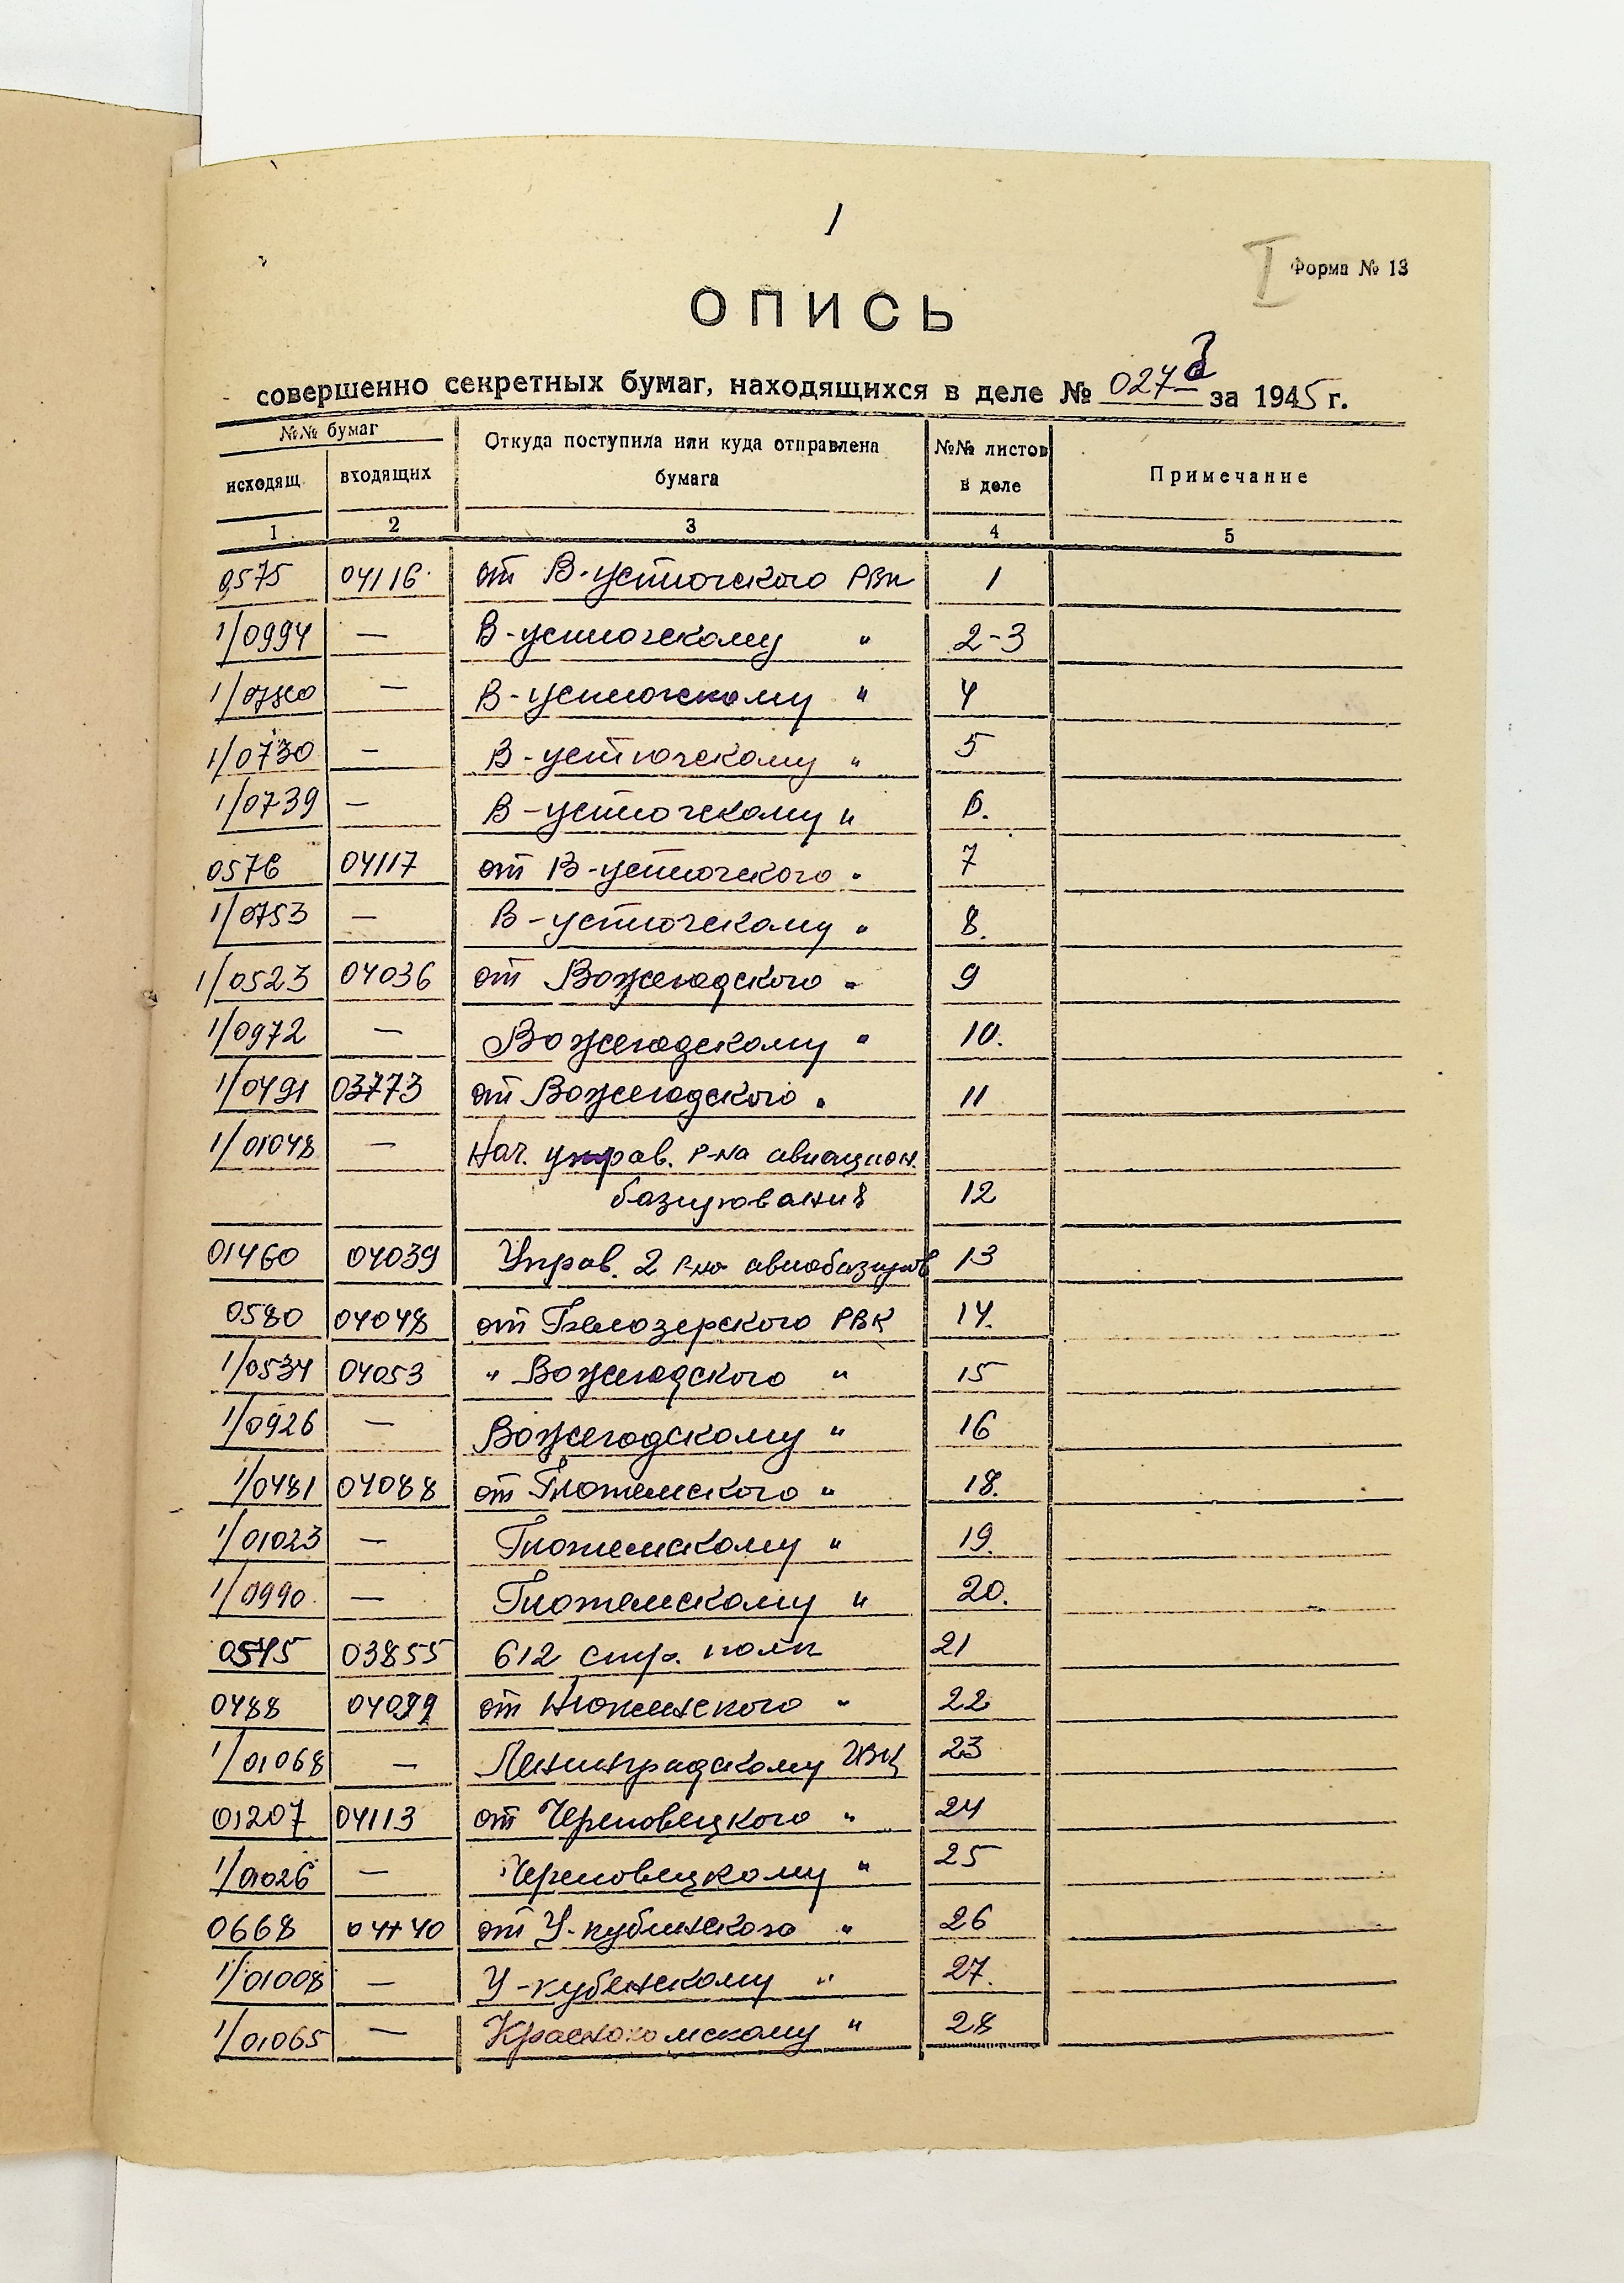 1
I Форма № 13
ОПИСЬ
совершенно секретных бумаг, находящихся в деле № 027 за 1945 г.
№№ бумаг
исходящ входящих Откуда поступила или куда отправлена бумага №№ листов в деле Примечание
1 2 3 4 5
0575 04116 от В-устюгского РВк 1
1/0994 — В-устюгскому " 2-3
— В-устюгскому " 4
1/0730 — В-устюгскому " 5
1/0739 — В-устюгскому " 6.
0576 04117 от В-устюгского " 7
1/0753 — В-устюгскому " 8.
1/0523 04036 от Вожегодского " 9
1/0972 — Вожегодскому " 10.
1/0491 03773 от Вожегодского " 11
1/01048 — Нач. управ. р-на авиацион.
базирования 12
01460 04039 Управ. 2 р-на авиабазиров 13
0580 04048 от Белозерского РВК 14.
1/0534 04053 " Вожегодского " 15
1/0926 — Вожегодскому " 16
1/0481 04088 от 18.
1/01023 — " 19.
1/0990. — " 20.
03855 612 стр. полк 21
0488 от Нюксенского " 22
1/01068 — Ленинградскому ГВК 23
01207 04113 от Череповецкого " 24
1/01026 — Череповецкому " 25
0668 от У-кубинского " 26
1/01008 — У-кубинскому " 27.
1/01065 — " 28